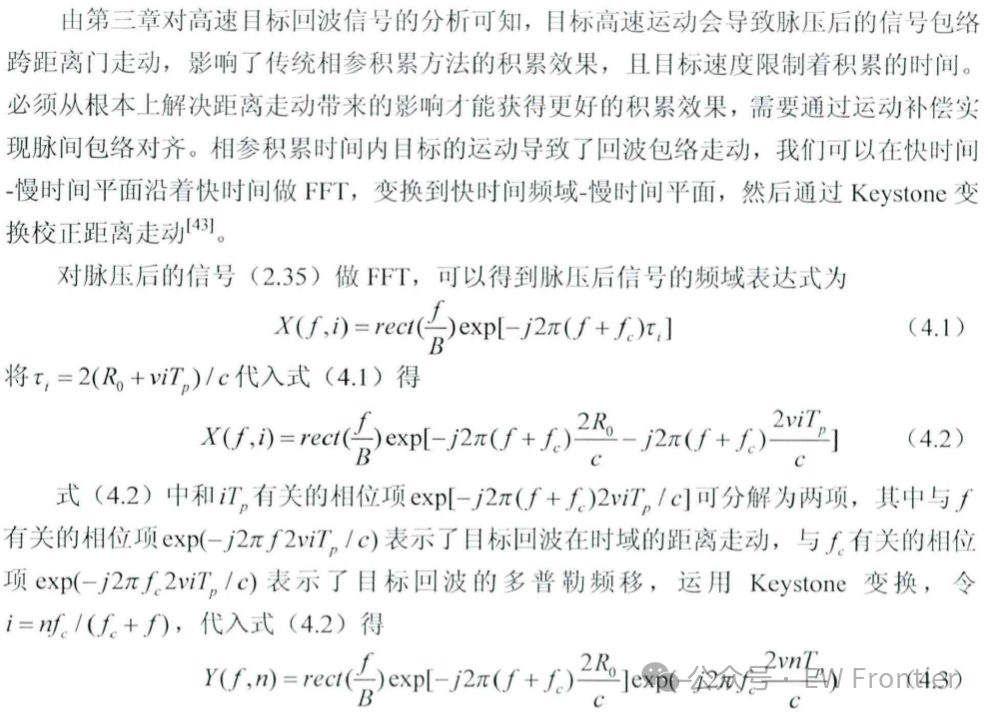 由第三章对高速目标回波信号的分析可知，目标高速运动会导致脉压后的信号包络
跨距离门走动，影响了传统相参积累方法的积累效果，且目标速度限制着积累的时间。
必须从根本上解决距离走动带来的影响才能获得更好的积累效果，需要通过运动补偿实
现脉间包络对齐。相参积累时间内目标的运动导致了回波包络走动，我们可以在快时间
-慢时间平面沿着快时间做 FFT，变换到快时间频域-慢时间平面，然后通过 Keystone 变
换校正距离走动[43]。
对脉压后的信号（2.35）做 FFT，可以得到脉压后信号的频域表达式为
X(f,i) = rect(f/B)exp[-j2π(f + f_c)τ_i] （4.1）
将 τ_i = 2(R_0 + viT_p) / c 代入式（4.1）得
X(f,i) = rect(f/B)exp[-j2π(f + f_c)2R_0/c - j2π(f + f_c)2viT_p/c] （4.2）
式（4.2）中和 iT_p 有关的相位项 exp[-j2π(f + f_c)2viT_p / c] 可分解为两项，其中与 f
有关的相位项 exp(-j2πf2viT_p / c) 表示了目标回波在时域的距离走动，与 f_c 有关的相位
项 exp(-j2πf_c2viT_p / c) 表示了目标回波的多普勒频移，运用 Keystone 变换，令
i = nf_c / (f_c + f)，代入式（4.2）得
Y(f,n) = rect(f/B)exp[-j2π(f + f_c)2R_0/c]exp(-j2πf_c2vnT_p/c) （4.3）
公众号 · EW Frontier